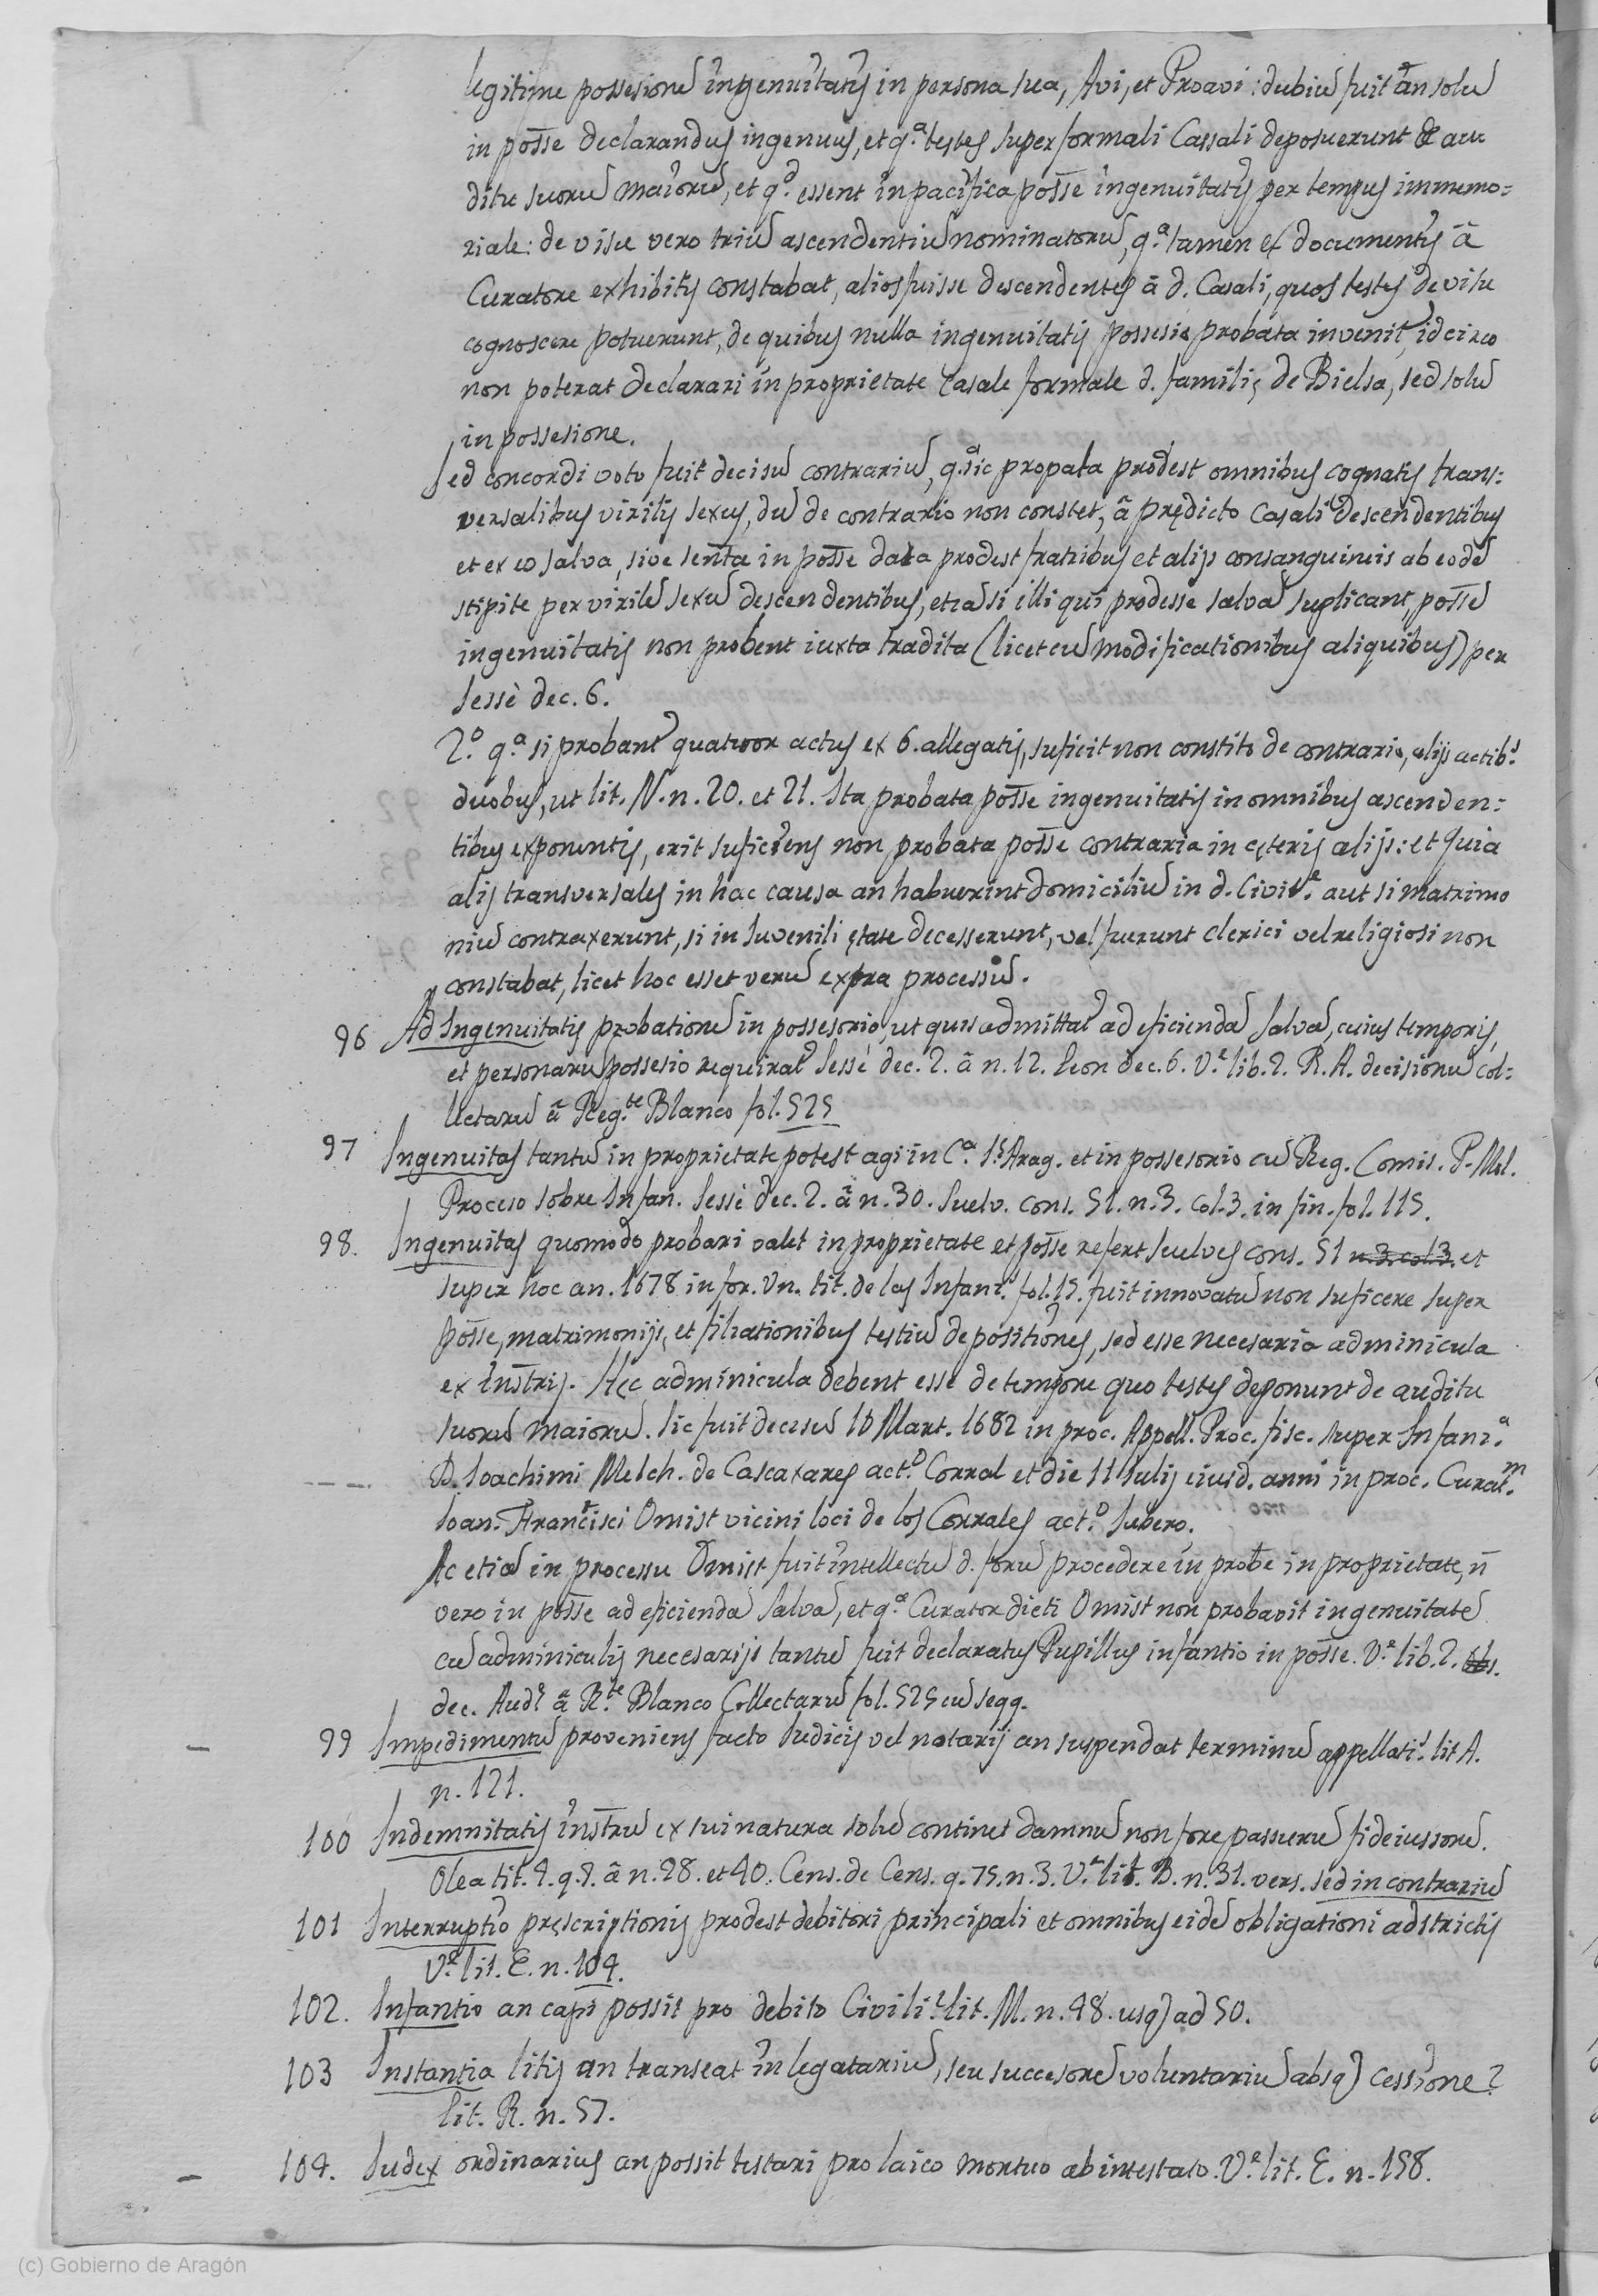 legitime possesione ingenuitatis in persona sua, Avi, et Proavi: dubiu fuit an solu
in posse declarandus ingenuus, et q.ª testes super formali Cassali deposuerunt de au
ditu suoru maioru, et q.º essent in pacifica posse ingenuitatis per tempus immemo=
riale: de visu vero triu ascendentiu nominatoru, q.ª tamen ex documentis â
Curatore exhibitis constabat, alios fuisse descendentes â d. Casali, quos testes de visu
cognoscere potuerunt, de quibus nulla ingenuitatis possesio probata invenit, idcirco
non poterat declarari in proprietate Casale formale d. familię de Bielsa, sed solu
in possesione.
Sed concordi voto fuit decisu contrariu, q.ª sic propata prodest omnibus cognatis trans:
versalibus virilis sexus, du de contrario non constet, â prędicto Casali descendentibus
et ex eo salva, sive senta in posse data prodest fratribus et alijs consanguineis ab eode
stipite per virile sexu descendentibus, etia si illi qui prodesse salva suplicant, posse
ingenuitatis non probent iuxta tradita (licet cu modificationibus aliquibus) per
Sessè dec. 6.
2.º q.ª si probant quatuor actus ex 6. allegatis, suficit non constito de contrario, alijs actib.s
duobus, ut lit. N. n. 20. et 21. Ita probata posse ingenuitatis in omnibus ascenden:
tibus exponentis, erit suficiens non probata posse contraria in cęteris alijs: et quia
alij transversales in hac causa an habuerint domiciliu in d. Civit.e aut si matrimo
niu contraxerunt, si in Iuvenili ętate decesserunt, vel fuerunt clerici vel religiosi non
constabat, licet hoc esset veru extra processu.
96 Ad Ingenuitatis probatione in possesorio, ut quis admittat ad eficienda salva, cuius temporis,
et personaru possesio requirat Sessè dec. 2. â n. 12. Leon dec. 6. V.e lib. 2. R. A. decisionu col=
lectaru â Reg.te Blanco fol. 525
97 Ingenuitas tantu in proprietate potest agi in C.ª I.s Arag. et in possesorio cu Reg. Comis. P. Mol.
Proceso sobre Infan. Sessè dec. 2. â n. 30. Suelv. cons. 51. n. 3. col. 3. in fin. fol. 115.
98. Ingenuitas quomodo probari valet in proprietate et posse refert Suelves cons. 51 n. 3. col. 3. et
super hoc an. 1678 in for. Un. tit. de las Infani.s fol. 15. fuit innovatu non suficere super
posse, matrimonijs, et filiationibus testiu depositiones, sed esse necesaria adminicula
ex instris. Hęc adminicula debent esse de tempore quo testes deponunt de auditu
suoru maioru. Sic fuit decisu 16 Mart. 1682 in proc. Appell. Proc. fisc. super Infani.ª
D. Ioachimi Melch. de Cascaxares act.º Corral et die 11 Iulij eiusd. anni in proc. Curat.m
Ioan. Francisci Omist vicini loci de los Corrales act.º Subero.
Ac etia in processu Omist fuit intellectu d. foru procedere in probe in proprietate, n
vero in posse ad eficienda salva, et q.ª Curator dicti Omist non probavit ingenuitate
cu adminiculis necesarijs tantu fuit declaratus Pupillus infantio in posse. V.e lib. 2.
dec. Aud.e â R.te Blanco Collectaru fol. 525 cu seqq.
99 Impedimentu proveniens facto Iudicis vel notarij an suspendat terminu appellati.s lit A.
n. 121.
100 Indemnitatis instru ex sui natura solu continet damnu non fore passuru fideiussore.
Olea tit. 4. q. 9. â n. 28. et 40. Cens. de Cens. q. 75. n. 3. V.e lit. B. n. 31. vers. sed in contrariu
101 Interruptio pręscriptionis prodest debitori principali et omnibus eide obligationi adstrictis
V.e lit. E. n. 104.
102. Infantio an capi possit pro debito Civili? lit. M. n. 48. usq ad 50.
103 Instantia litis an transeat in legatariu, seu succesore voluntariu absq cessione?
lit. R. n. 57.
104. Iudex ordinarius an possit testari pro laico mortuo ab intestato. V.e lit. E. n. 158.
(c) Gobierno de Aragón